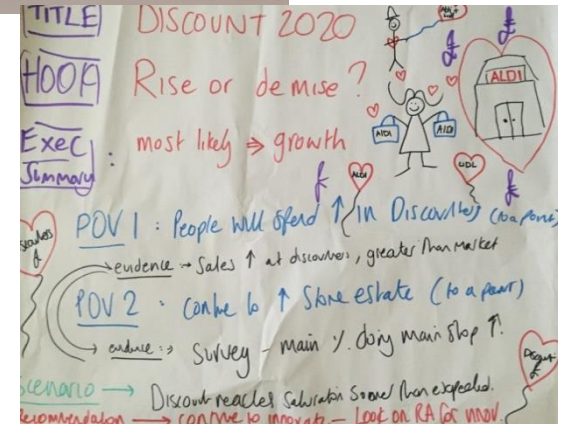 TITLE DISCOUNT 2020
HOOK Rise or demise?
Exec Summary : most likely ⇒ growth
ALDI
ALDI ALDI
ALDI LIDL
£ £ £
POV 1 : People will spend ↑ in Discounters (to a point)
evidence → Sales ↑ at discounters, greater than market
POV 2 : contine to ↑ Store estate (to a point)
evidence :→ Survey - main % doing main shop ↑.
Discount £
Scenario → Discount reaches saturation sooner than expected.
Recommendation → continue to innovate - Look on RA for innov.